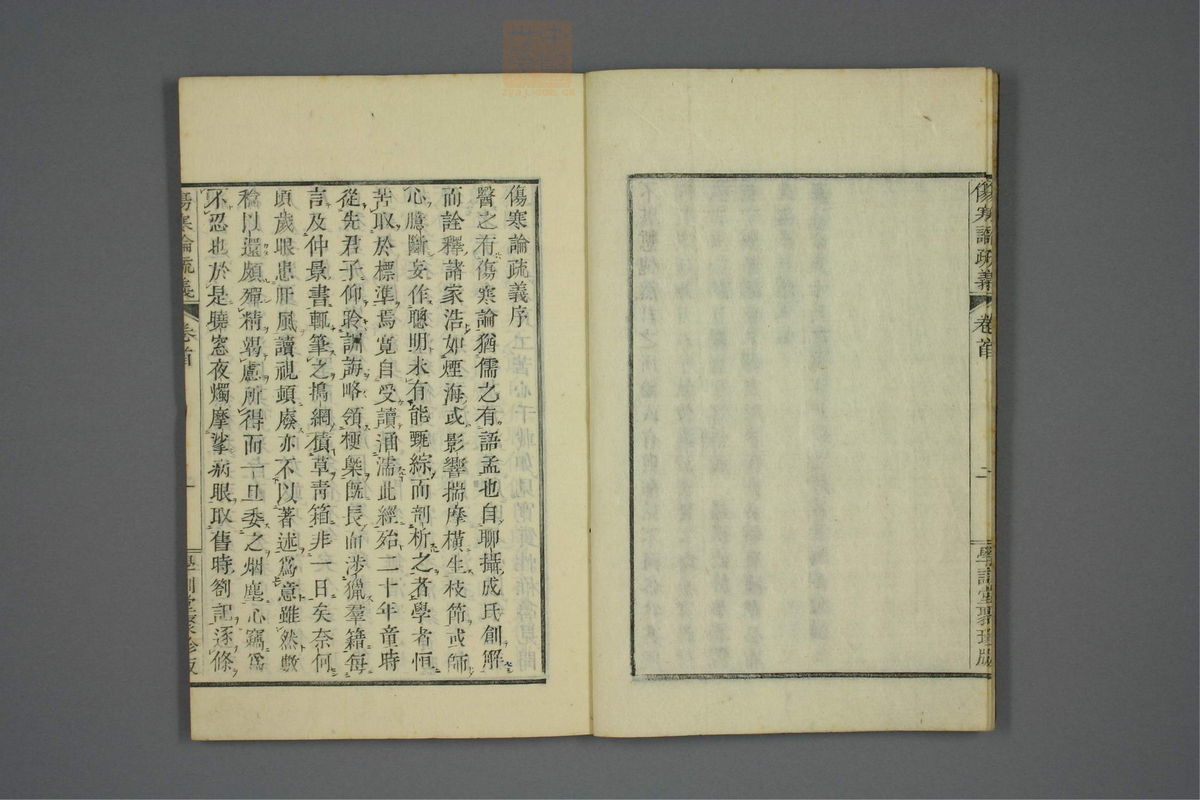 傷寒論疏義
卷首
二
學訓堂聚珍版
傷寒論疏義序
醫之有傷寒論猶儒之有語孟也自聊攝成氏創解
而詮釋諸家浩如煙海或影響揣摩橫生枝節或師
心臆斷妄作聰明未有能甄綜而剖析之者學者恒
苦取於標準焉寬自受讀涵濡此經殆二十年童時
從先君子仰聆訓誨略領梗槩既長而涉獵羣籍每
言及仲景書輒筆之搗網積草青箱非一日矣奈何
頃歲眼患肝風讀視頓廢亦不以著述爲意雖然數
稔以還頗殫精竭慮所得而一旦委之烟塵心竊爲
不忍也於是曉窓夜燭摩挲病眼取舊時劄記逐條
傷寒論疏義
卷首
一
學訓堂聚珍版